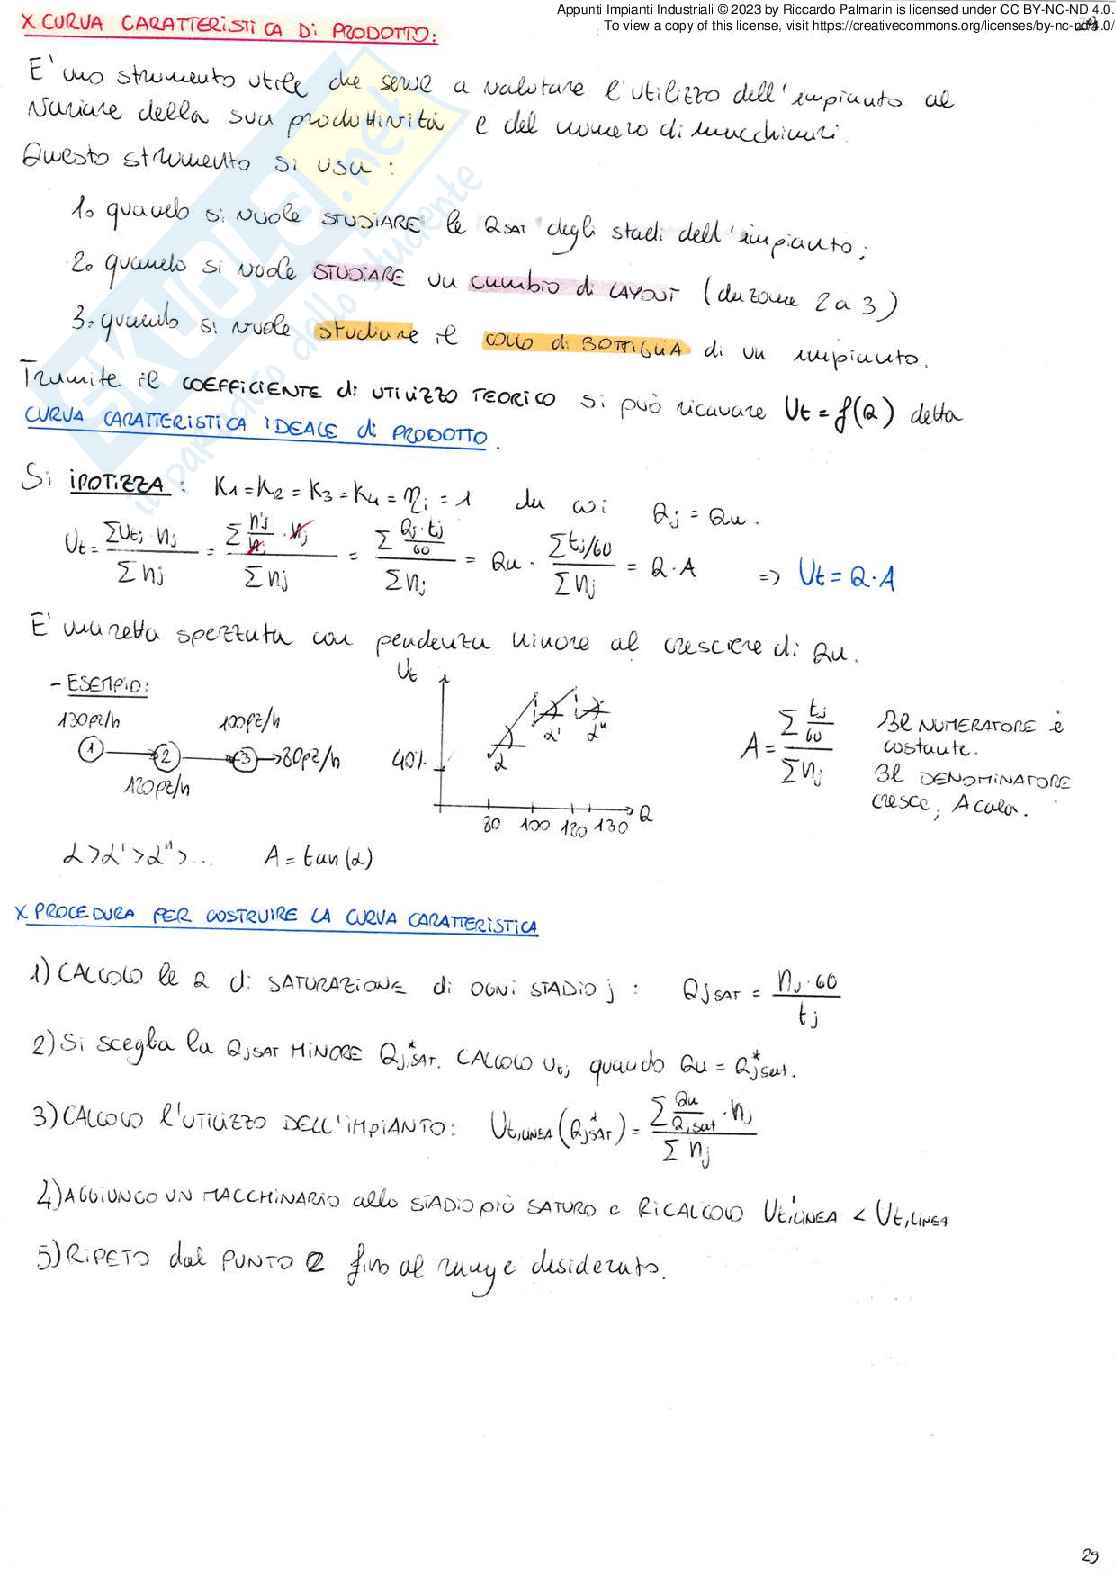 Appunti Impianti Industriali © 2023 by Riccardo Palmarin is licensed under CC BY-NC-ND 4.0.
To view a copy of this license, visit https://creativecommons.org/licenses/by-nc-nd/4.0/
X CURVA CARATTERISTICA Di PRODOTTO:
E' uno strumento utile che serve a valutare l'utilizzo dell'impianto al
variare della sua produttività e del numero di macchinari.
Questo strumento si usa:
1. quando si vuole STUDIARE le QSAT degli stadi dell'impianto;
2. quando si vuole STUDIARE un cambio di LAYOUT (da zone 2 a 3)
3. quando si vuole studiare il COLLO di BOTTIGLIA di un impianto.
Tramite il COEFFICIENTE di UTILIZZO TEORICO si può ricavare Ut = f(Q) detta
CURVA CARATTERISTICA IDEALE di PRODOTTO.
Si IPOTIZZA: K1=K2=K3=K4=ηj=1 da cui Qj = Qu.
Ut = ΣUtj nj / Σnj = Σ n'j/nj · nj / Σnj = Σ Qj·tj/60 / Σnj = Qu · Σtj/60 / Σnj = Q·A => Ut = Q·A
E' una retta spezzata con pendenza minore al crescere di Qu.
- ESEMPIO:
130pz/h 100pz/h
1 2 3 80pz/h
120pz/h
Ut
40%
α α' α"
80 100 120 130 Q
A = Σ tj/60 / Σnj
Il NUMERATORE è
costante.
Il DENOMINATORE
cresce, A cala.
α>α'>α">... A = tan(α)
X PROCEDURA PER COSTRUIRE LA CURVA CARATTERISTICA
1) CALCOLO le Q di SATURAZIONE di OGNI STADIO j: QjSAT = nj·60 / tj
2) Si sceglia la QjSAT MINORE Q*jSAT. CALCOLO Utj quando Qu = Q*jsat.
3) CALCOLO l'UTILIZZO DELL'IMPIANTO: Ut,LINEA (Q*jSAT) = Σ Qu/Qjsat · nj / Σ nj
4) AGGIUNGO UN MACCHINARIO allo STADIO più SATURO e RICALCOLO U't,LINEA < Ut,LINEA
5) RIPETO dal PUNTO 2 fino al range desiderato.
29
SKUOLA.net